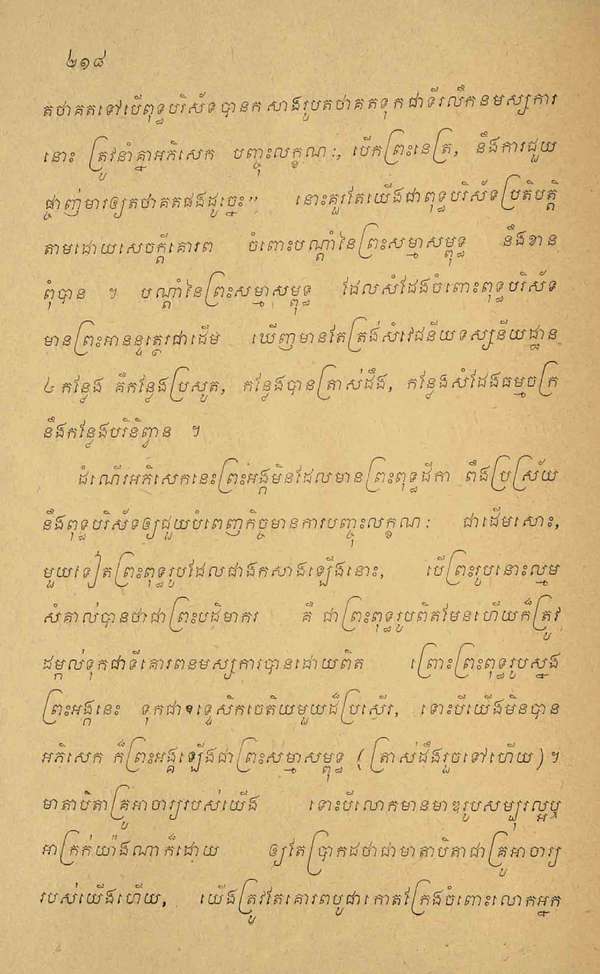 ២១៨
តថាគតទៅបើពុទ្ធបរិស័ទបានកសាងរូបតថាគតទុកជាទីរលឹកនមស្សការ
នោះ ត្រូវនាំគ្នាអភិសេក បញ្ចុះលក្ខណៈ, បើកព្រះនេត្រ, នឹងការជួយ
ផ្ចាញ់មារឲ្យតថាគតផងដូច្នេះ” នោះគួរតែយើងជាពុទ្ធបរិស័ទប្រតិបត្តិ
តាមដោយសេចក្តីគោរព ចំពោះបណ្តាំនៃព្រះសម្មាសម្ពុទ្ធ នឹងខាន
ពុំបាន ។ បណ្តាំនៃព្រះសម្មាសម្ពុទ្ធ ដែលសំដែងចំពោះពុទ្ធបរិស័ទ
មានព្រះអានន្ទត្ថេរជាដើម ឃើញមានតែត្រង់សំវេជនីយទស្សនីយដ្ឋាន
៤ កន្លែង គឺកន្លែងប្រសូត, កន្លែងបានត្រាស់ដឹង, កន្លែងសំដែងធម្មចក្រ
នឹងកន្លែងបរិនិព្វាន ។
ដំណើរអភិសេកនេះព្រះអង្គមិនដែលមានព្រះពុទ្ធដីកា ពឹងប្រស្រ័យ
នឹងពុទ្ធបរិស័ទឲ្យជួយបំពេញកិច្ចមានការបញ្ចុះលក្ខណៈ ជាដើមសោះ,
មួយទៀតព្រះពុទ្ធរូបដែលជាងកសាងឡើងនោះ, បើព្រះរូបនោះល្មម
សំគាល់បានថាជាព្រះបដិមាករ គឺ ជាព្រះពុទ្ធរូបពិតមែនហើយក៏ត្រូវ
ដម្កល់ទុកជាទីគោរពនមស្សការបានដោយពិត ព្រោះព្រះពុទ្ធរូបស្នង
ព្រះអង្គនេះ ទុកជាឧទ្ទេសិកចេតិយមួយដ៏ប្រសើរ, ទោះបីយើងមិនបាន
អភិសេក ក៏ព្រះអង្គឡើងជាព្រះសម្មាសម្ពុទ្ធ (ត្រាស់ដឹងរួចទៅហើយ)។
មាតាបិតាគ្រូអាចារ្យរបស់យើង ទោះបីលោកមានមាឌរូបសម្បុរល្អឬ
អាក្រក់យ៉ាងណាក៏ដោយ ឲ្យតែប្រាកដថាជាមាតាបិតាជាគ្រូអាចារ្យ
របស់យើងហើយ, យើងត្រូវតែគោរពបូជាកោតក្រែងចំពោះលោកអ្នក